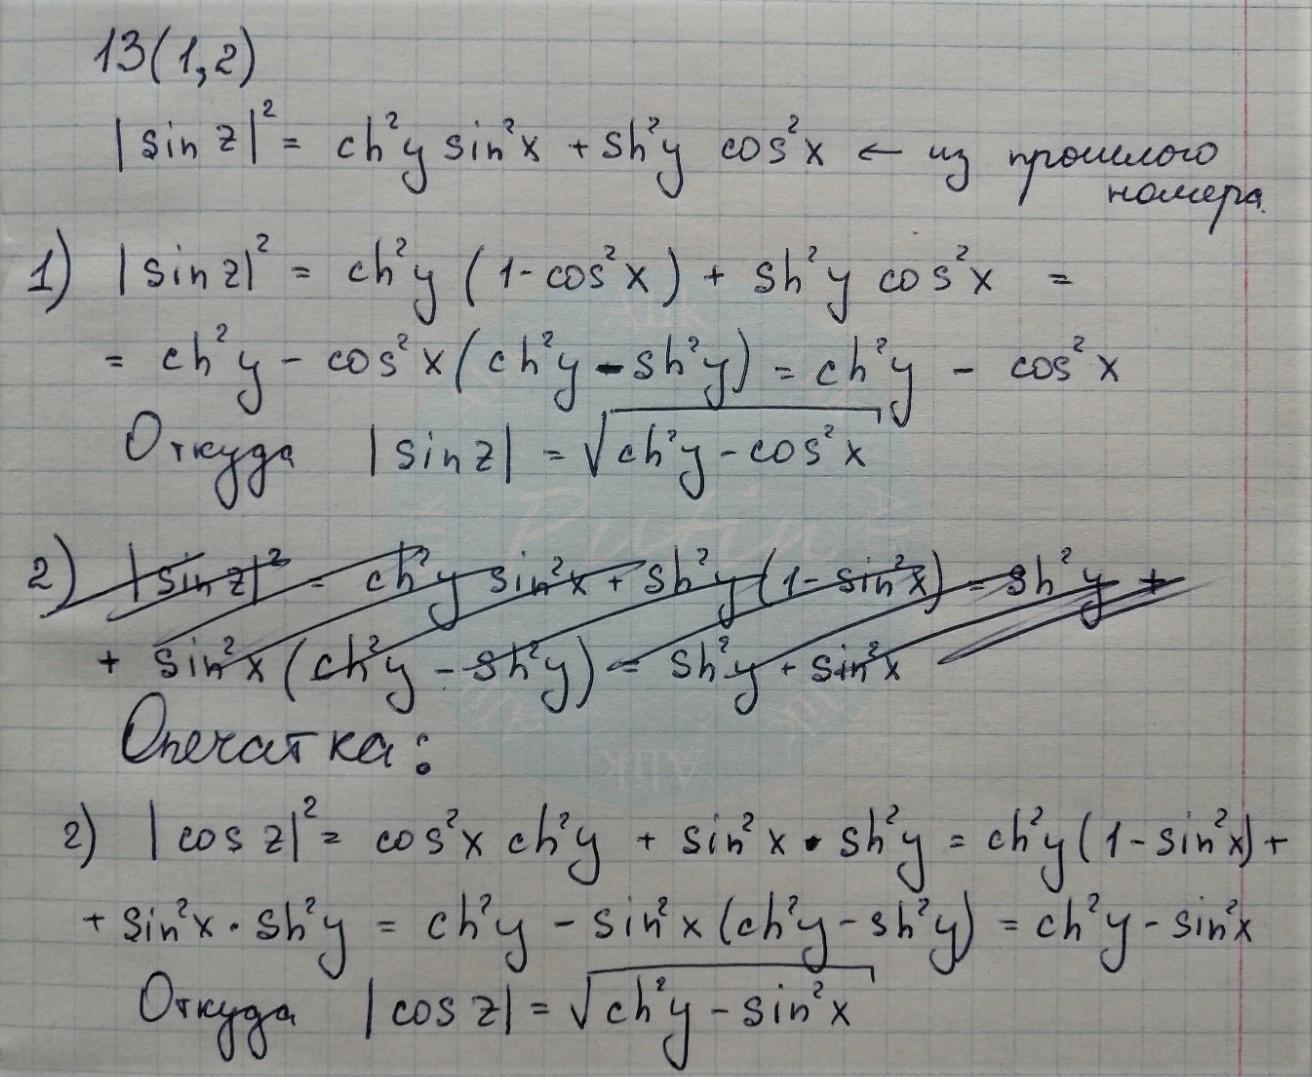 13(1,2)
|sin z|² = ch²y sin²x + sh²y cos²x ← из прошлого
номера.
1) |sin z|² = ch²y (1-cos²x) + sh²y cos²x =
= ch²y - cos²x (ch²y - sh²y) = ch²y - cos²x
Откуда |sin z| = √(ch²y - cos²x)
2) |sin z|² = ch²y sin²x + sh²y (1- sin²x) = sh²y +
+ sin²x (ch²y - sh²y) = sh²y + sin²x
Опечатка:
2) |cos z|² = cos²x ch²y + sin²x · sh²y = ch²y (1 - sin²x) +
+ sin²x · sh²y = ch²y - sin²x (ch²y - sh²y) = ch²y - sin²x
Откуда |cos z| = √(ch²y - sin²x)